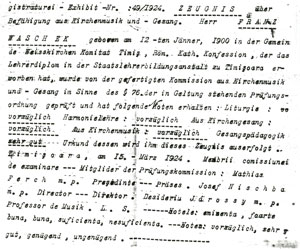 gistraturei - Exhibit-Nr. 149/1924. Z E U G N I S über
Befähigung aus Kirchenmusik und - Gesang. Herr F R A N Z
W A S C H E K geboren am 12-ten Jänner, 1900 in der Gemein
de Weisskirchen Komitat Timiş, Röm. Kath. Konfession, der das
Lehrerdiplom in der Staatslehrerbildungsanstalt zu Timişoara er
worben hat, wurde von der gefertigten Kommission aus Kirchenmusik
und - Gesang im Sinne des § 76. der in Geltung stehenden Prüfungs-
ordnung geprüft und hat folgende Noten erhalten: Liturgie : vo
vorzüglich Harmonielehre : vorzüglich Aus Kirchengesang :
vorzüglich. Aus Kirchenmusik: vorzüglich Gesangspädagogik
sehr gut. Urkund dessen wird ihm dieses Zeugnis ausgefolgt.
T i m i ş o a r a, am 15. März 1924. Membrii comisiunei
de examinare --- Mitglieder der Prüfungskommission: Mathias
P e r c h m. p. Preşedinte --- Präses. Josef N i s c h b a
m. p. Director --- Direktor: Desideriu J á r o s s y m. p.
Professor de Musik. L. S. ------Notele: eminenta, foarte
buna, buna, suficienta, nesuficienta. ---Noten: vorzüglich, sehr g
gut, genügend, ungenügend. ------------